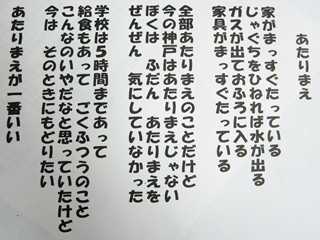 あたりまえ
家がまっすぐたっている
じゃぐちをひねれば水が出る
ガスが出ておふろに入る
家具がまっすぐたっている
全部あたりまえのことだけど
今の神戸はあたりまえじゃない
ぼくは ふだん あたりまえを
ぜんぜん 気にしていなかった
学校は5時間まであって
給食もあって ごくふつうのこと
こんなのいやだなと思っていたけど
今は そのときにもどりたい
あたりまえが一番いい